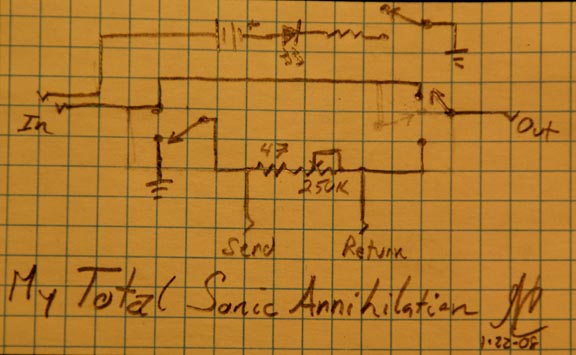 In
Out
47
250K
Send
Return
My Total Sonic Annihilation
1-22-08